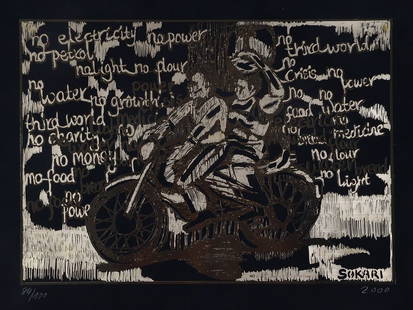 no electricity no power
no petrol
no light no flour
no
water no growth
third world
no charity
no money
no food
no
power
no
third world
no
crisis no
no power
food water
no medicine
no
no flour
no
no light
SOKARI
2000